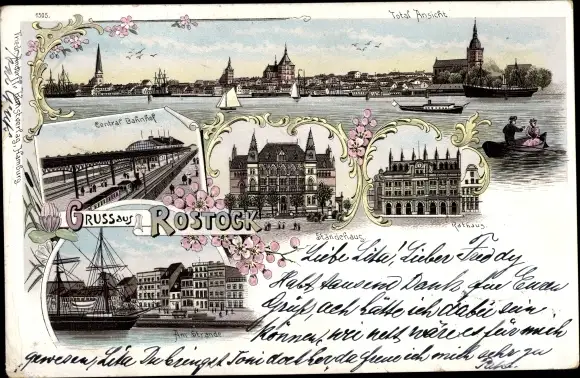 1505.
Total Ansicht
Central Bahnhof
GRUSS aus ROSTOCK
Ständehaus
Rathaus
Am Strande
Liebe Lita! Lieber Freddy
Habt tausend Dank für Euren
Gruß, ach hätte ich dabei sein
können, wie nett wäre es für mich
gewesen, Lita Du bringst Toni doch her, da freue ich mich sehr zu